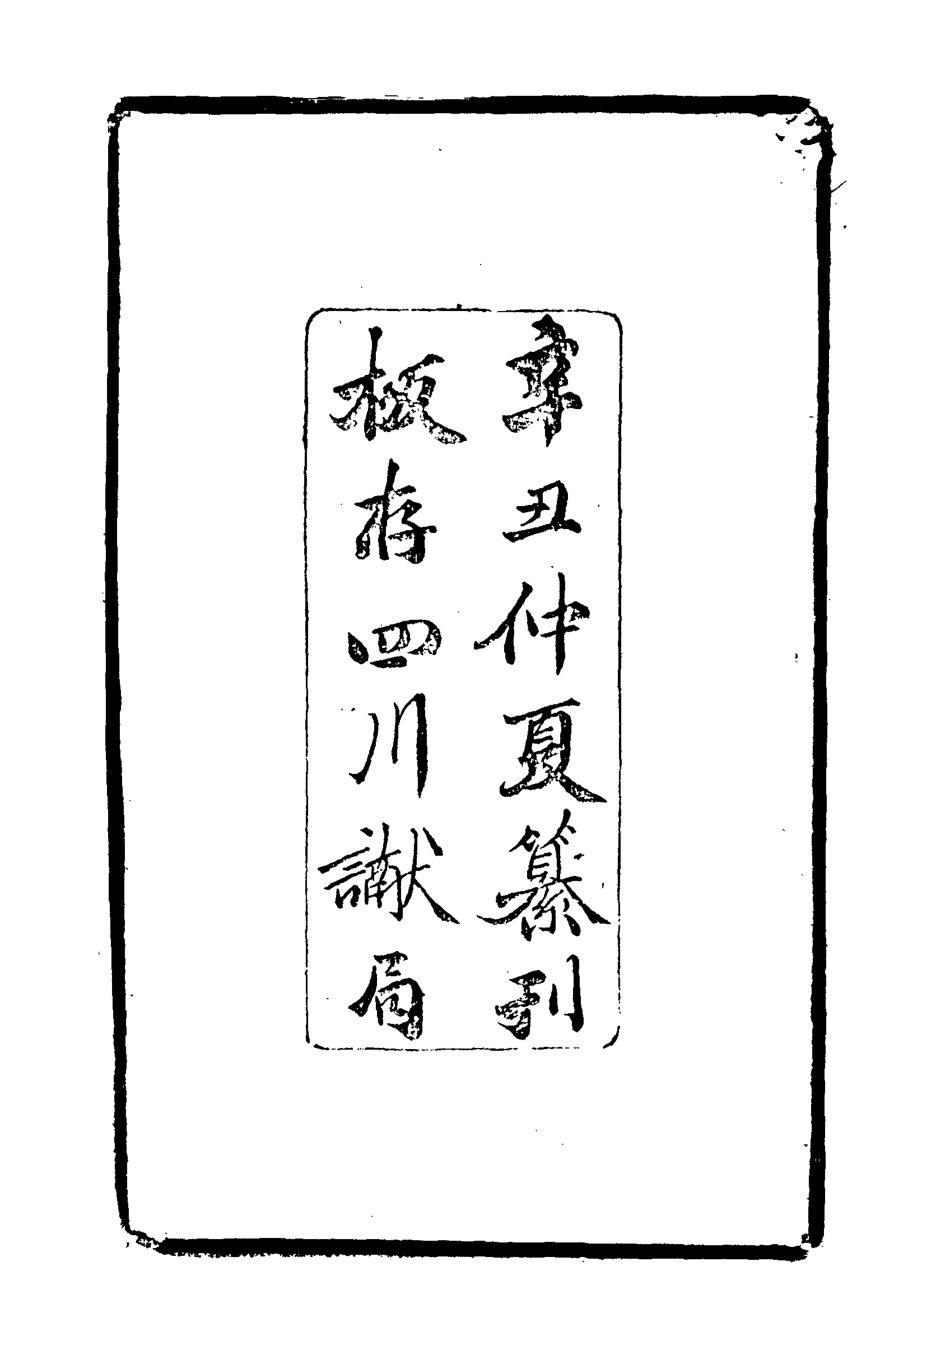 辛丑仲夏纂刊
板存四川讞局